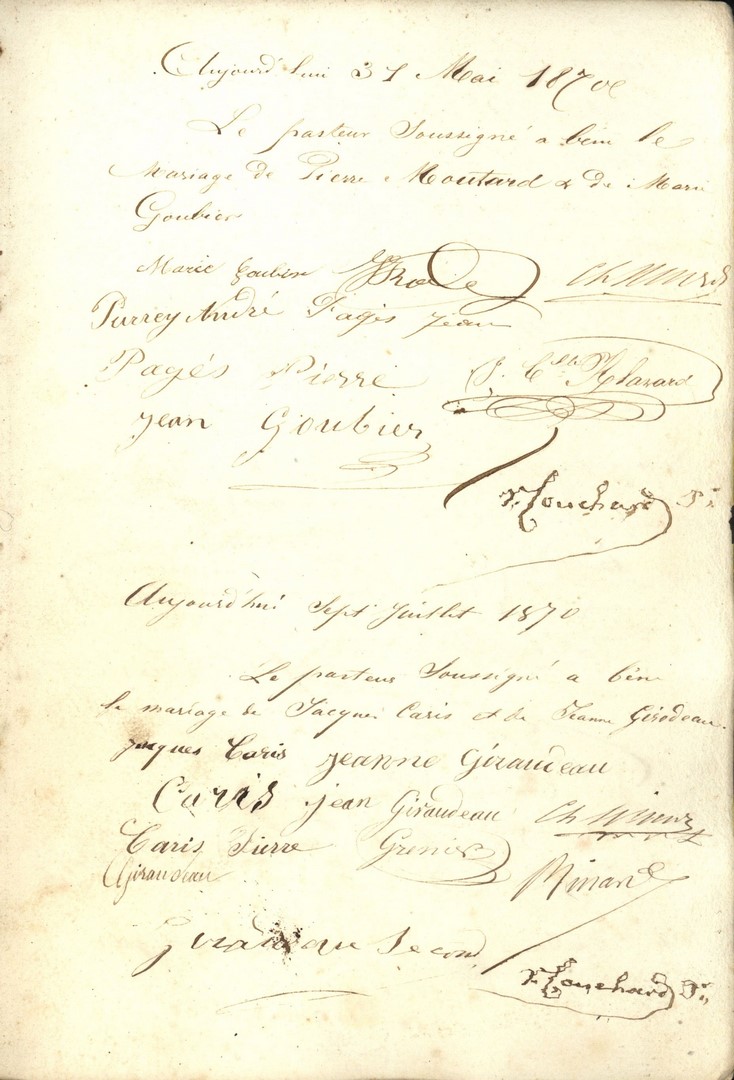 Aujourd'hui 31 Mai 1870
Le pasteur Soussigné a béni le
Mariage de Pierre Moutard & de Marie
Goubier
Marie Goubier
Purrey André Pagès Jean
Pagès Pierre J. Clazard
Jean Goubier
Touchard
Aujourd'hui Sept Juillet 1870
Le pasteur Soussigné a béni
le mariage de Jacques Caris et de Jeanne Girodeau.
Jacques Caris Jeanne Giraudeau
Caris Jean Giraudeau
Caris Pierre Grenier
Giraudeau Minard
Giraudeau Second
Touchard